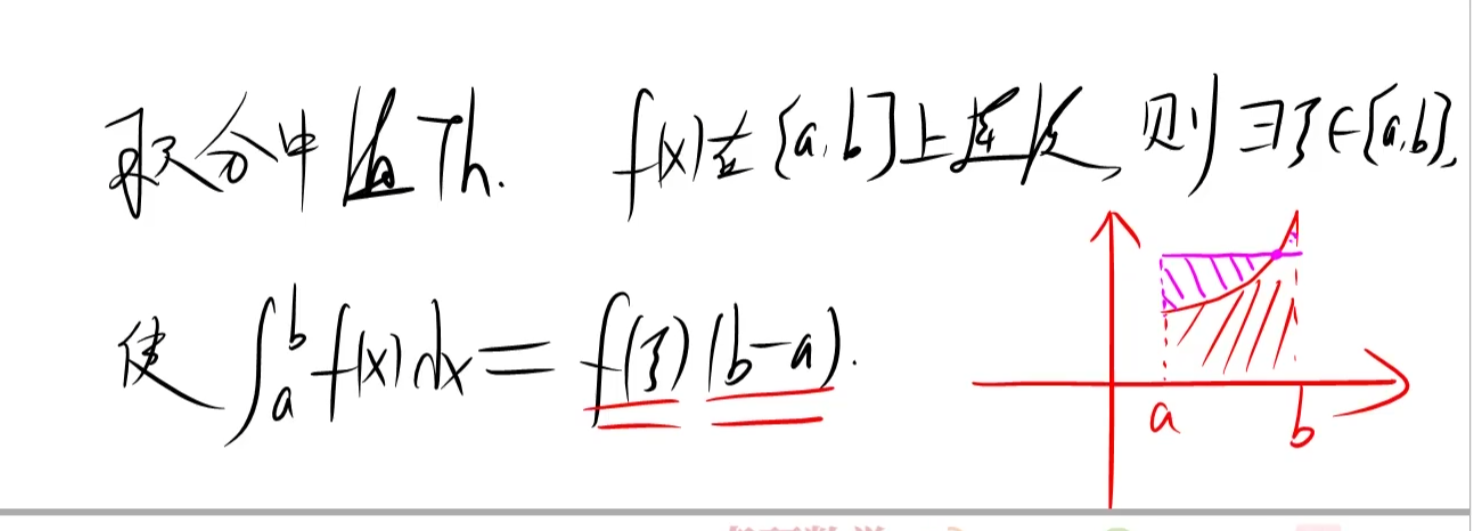 积分中值Th. f(x)在[a,b]上连续,则∃ξ∈[a,b],
使 ∫ₐᵇ f(x)dx = f(ξ)(b-a).
a
b